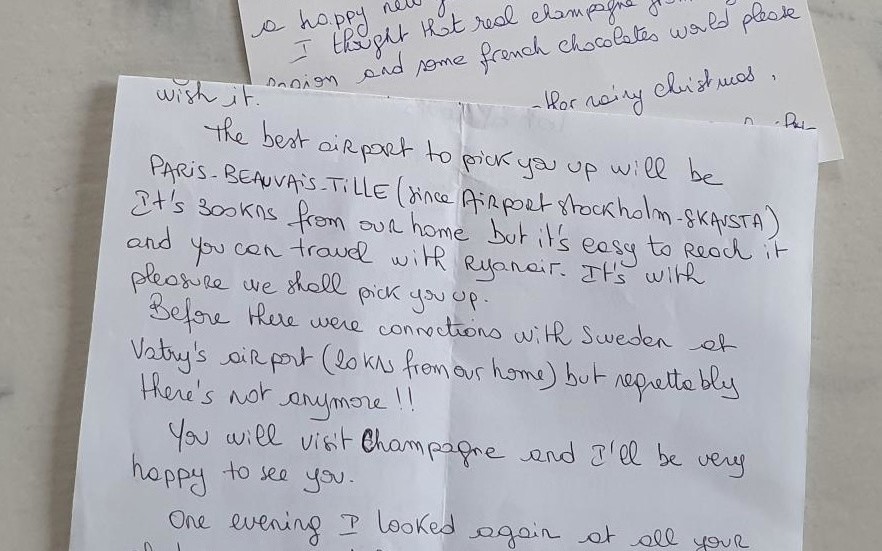 a happy new
I thought that real champagne
and some french chocolates would please
rainy christmas.
wish it.
The best airport to pick you up will be
PARIS-BEAUVAIS-TILLE (since Airport Stockholm-SKAVSTA)
It's 300kms from our home but it's easy to reach it
and you can travel with Ryanair. It's with
pleasure we shall pick you up.
Before there were connections with Sweden at
Vatry's airport (20km from our home) but regrettably
there's not anymore !!
You will visit Champagne and I'll be very
happy to see you.
One evening I looked again at all your